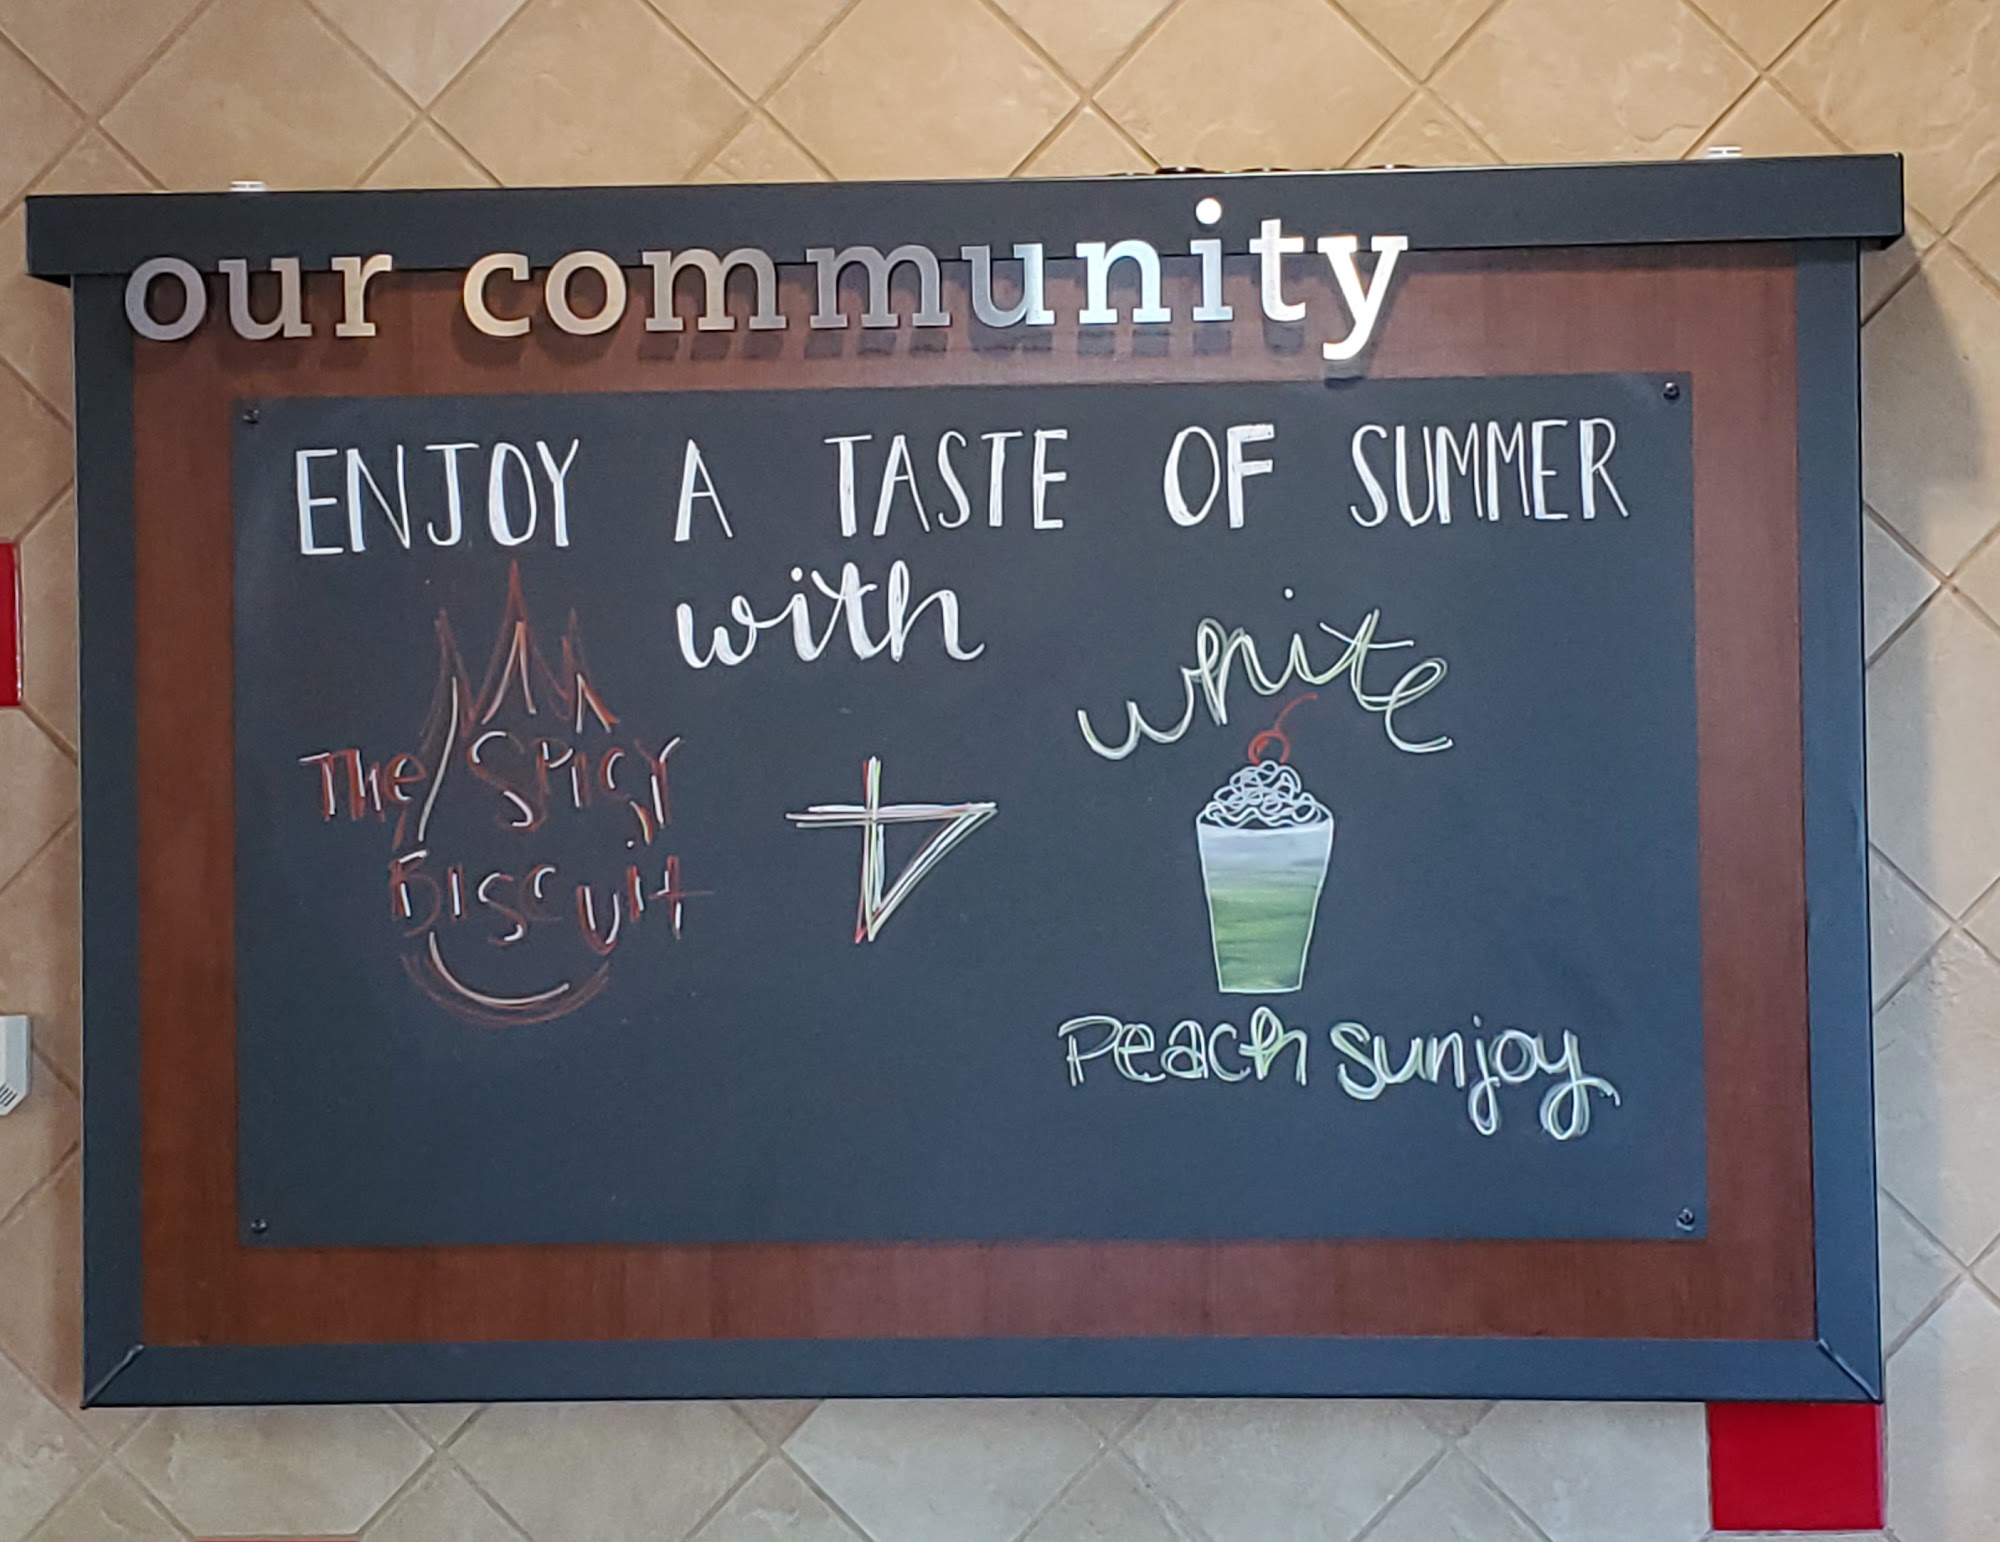 our community
ENJOY A TASTE OF SUMMER
with
The SPICY
BISCUIT
+
white
Peach sunjoy